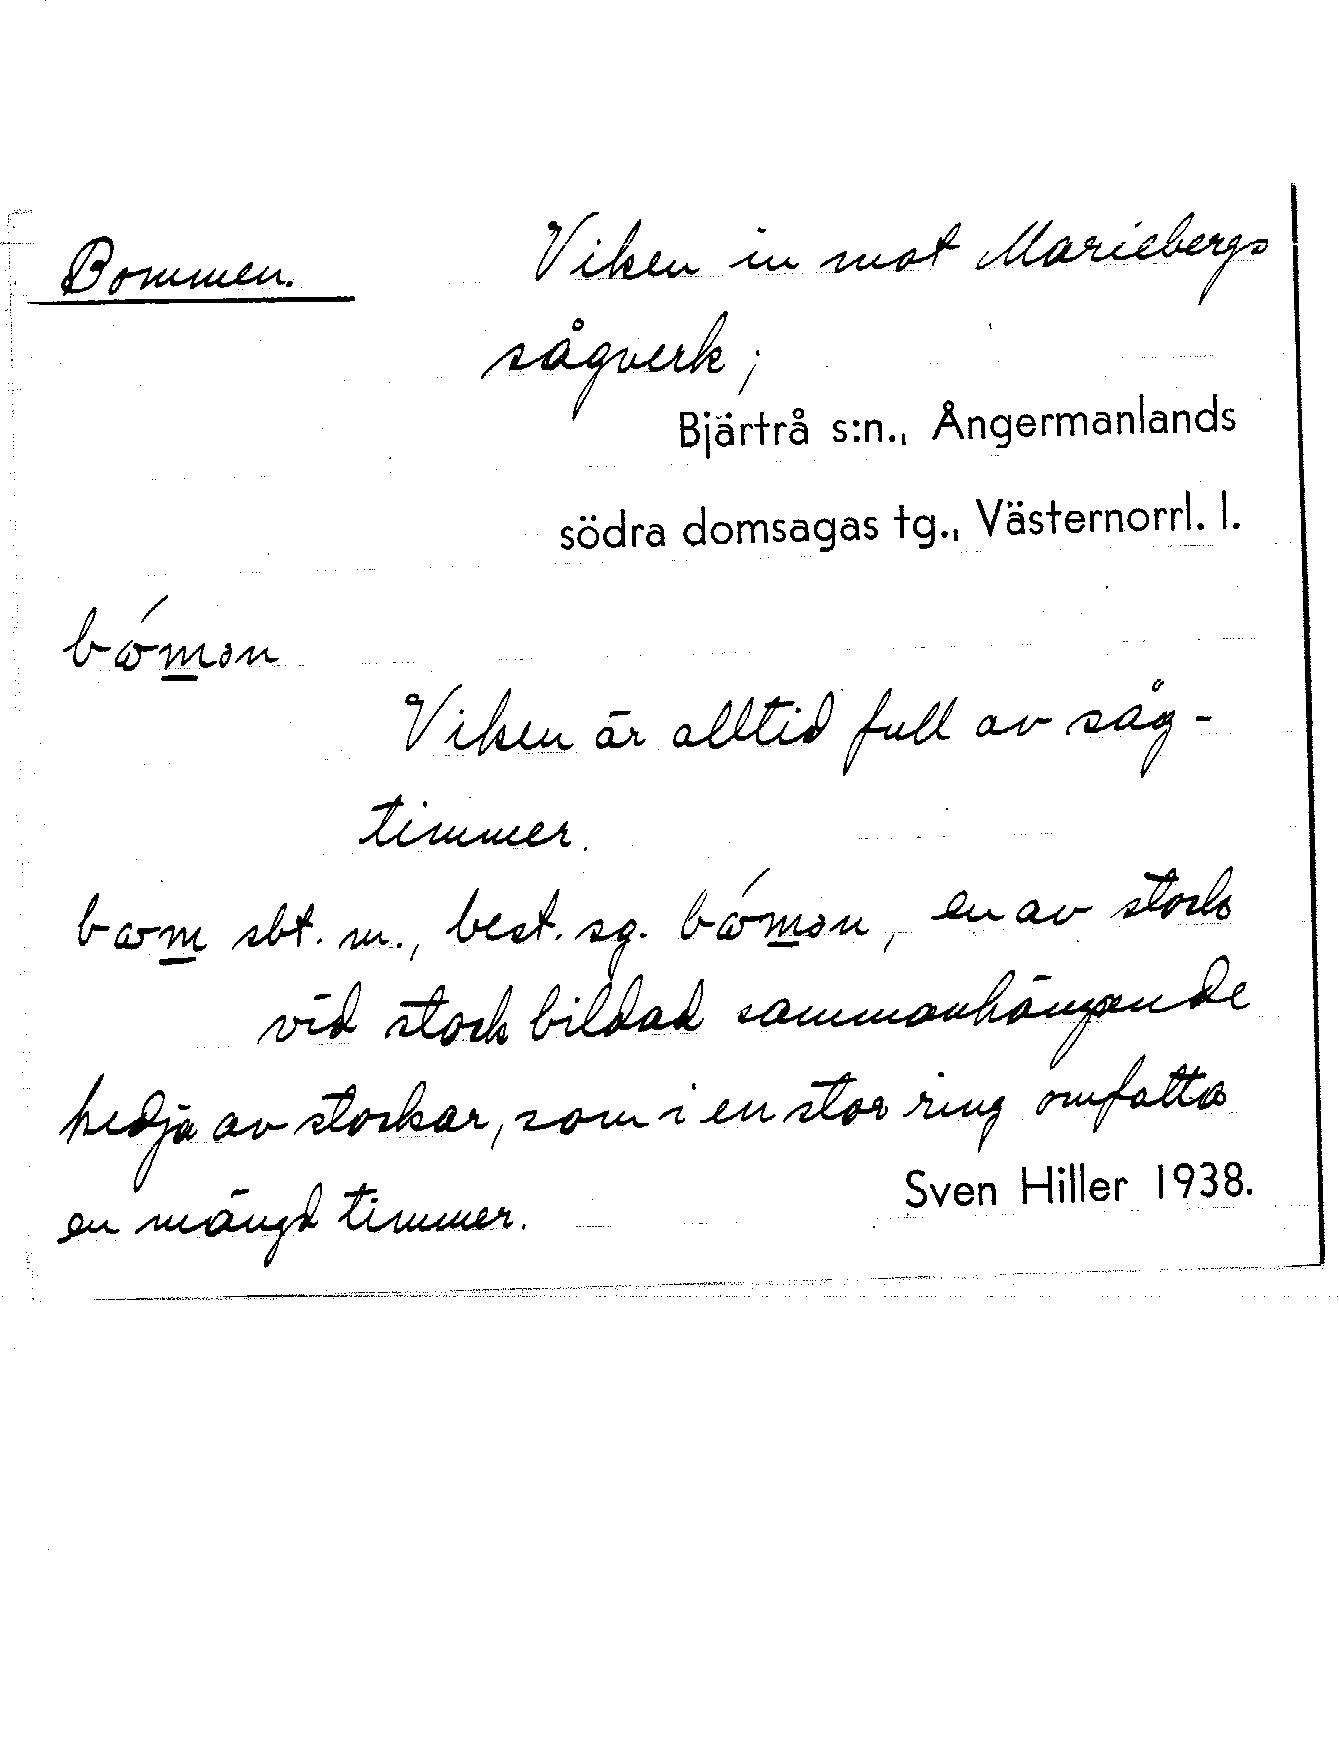 Bommen. Viken in mot Mariebergs
sågverk;
Bjärtrå s:n., Ångermanlands
södra domsagas tg., Västernorrl. l.
bɷ́m̲ən
Viken är alltid full av såg-
timmer.
bɷm̲ sbt. m., best. sg. bɷ́m̲ən, en av stock
vid stock bildad sammanhängande
kedja av stockar, som i en stor ring omfatta
en mängd timmer.
Sven Hiller 1938.